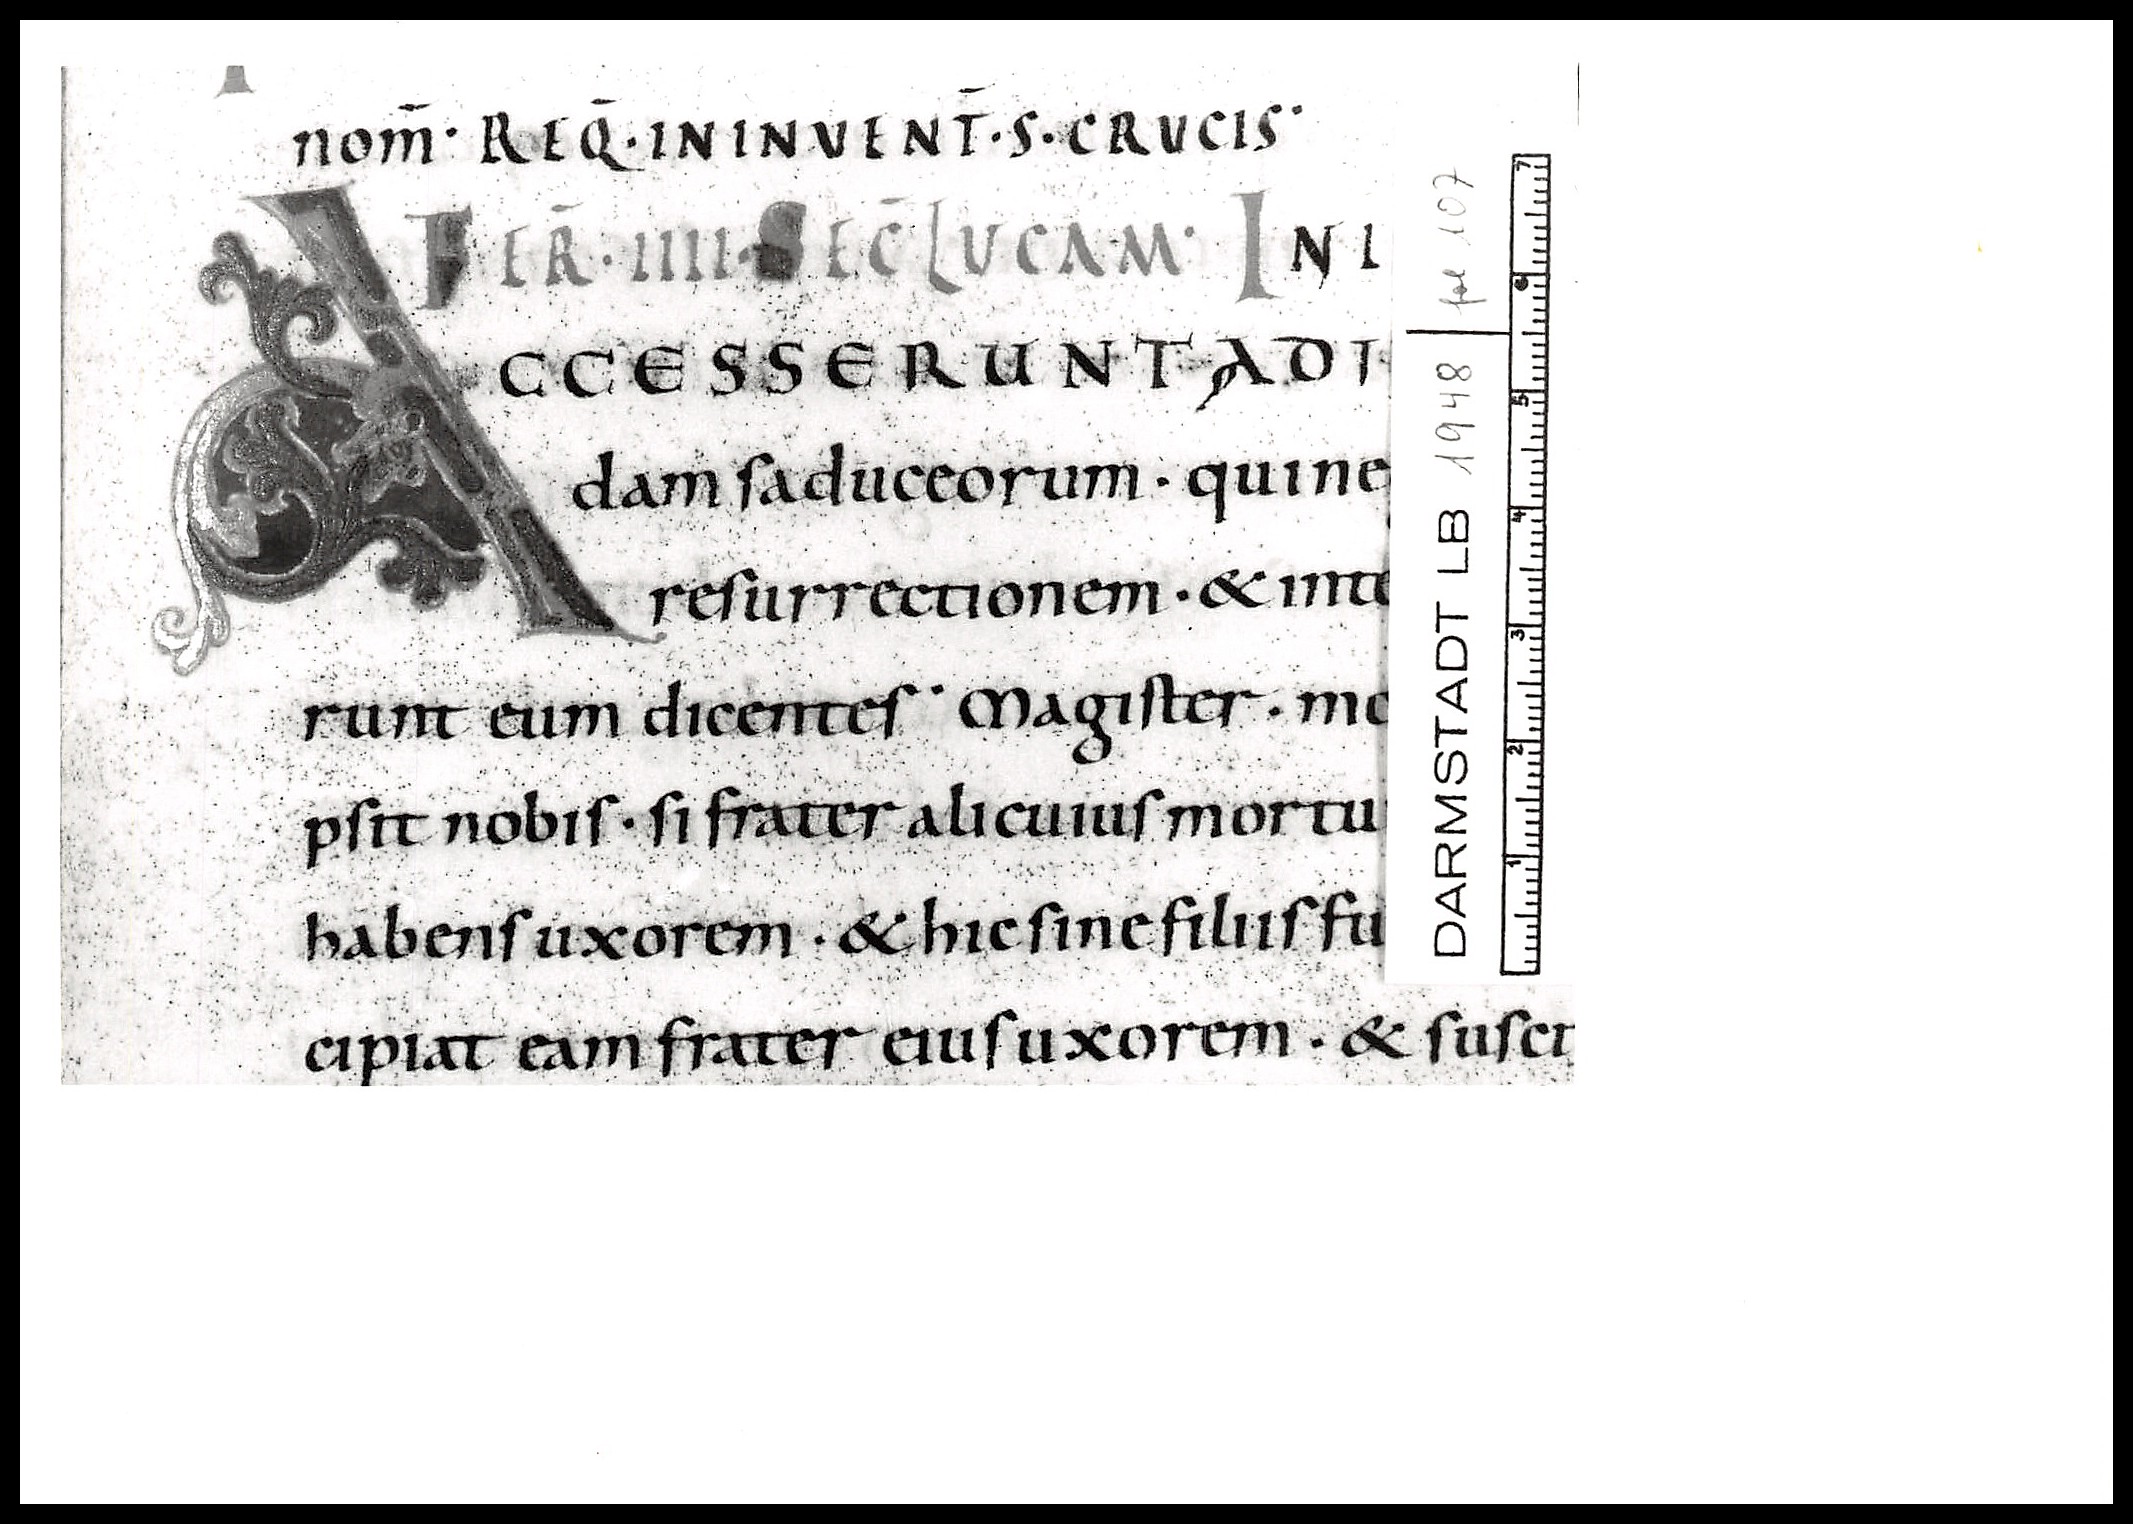 nom̄· REQ̄·IN INVENT̄·S·CRUCIS·
FER̄·IIII·SEC̄ LUCAM· IN I
ACCESSERUNT AD I
dam saduceorum· qui ne
resurrectionem·& inte
runt eum dicentes· Magister· mo
psit nobis· si frater alicuius mortu
habens uxorem·& hic sine filiis fu
cipiat eam frater eius uxorem·& susci
DARMSTADT LB 1948 fol 107
1 2 3 4 5 6 7